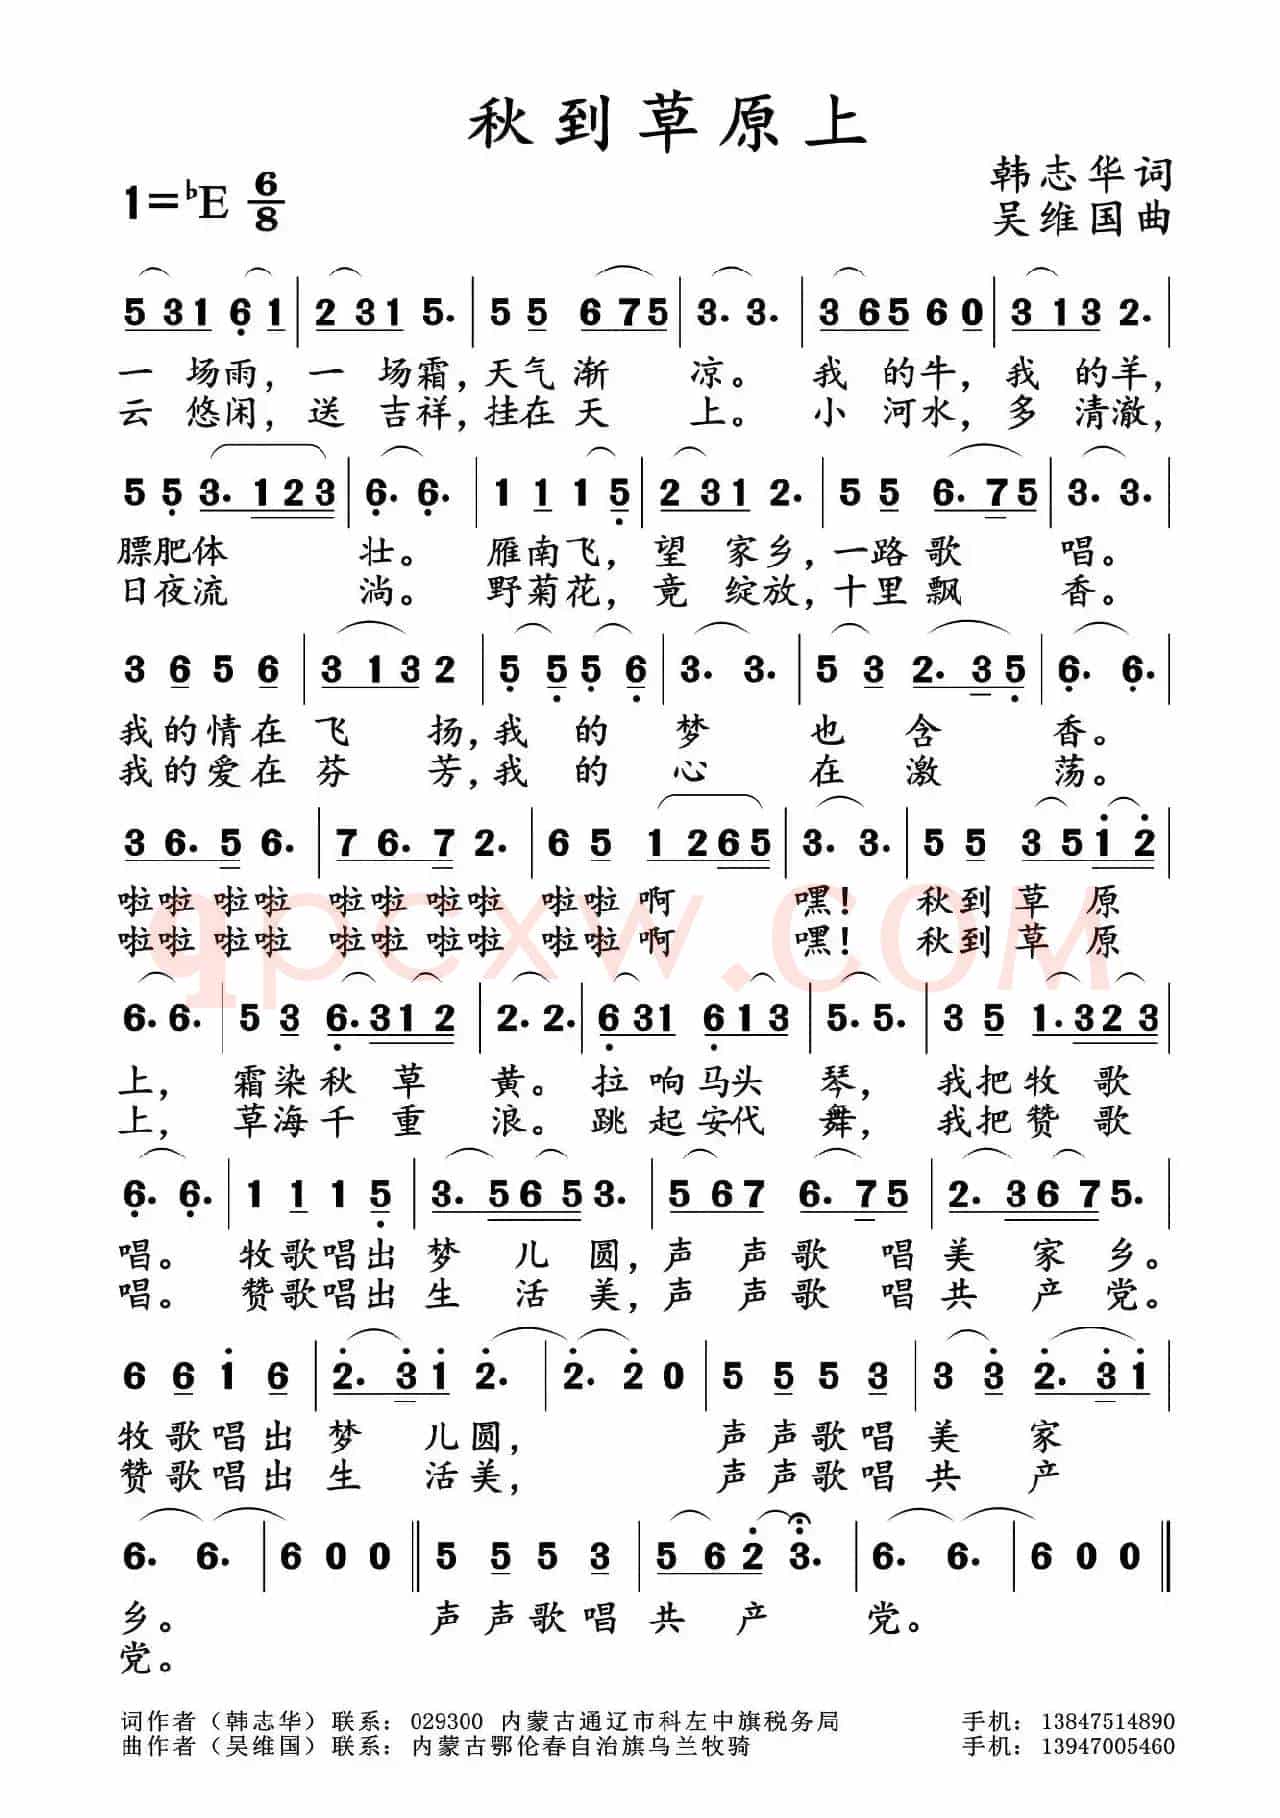 秋到草原上
1=♭E 6/8
韩志华词
吴维国曲
5 3 1 6 1 | 2 3 1 5. | 5 5 6 7 5 | 3. 3. | 3 6 5 6 0 | 3 1 3 2. |
一 场雨，一 场霜，天气渐 凉。 我 的牛，我 的羊，
云 悠闲，送 吉祥，挂在天 上。 小 河水，多 清澈，
5 5 3. 1 2 3 | 6. 6. | 1 1 1 5 | 2 3 1 2. | 5 5 6. 7 5 | 3. 3. |
膘肥体 壮。 雁南飞，望 家乡，一路歌 唱。
日夜流 淌。 野菊花，竟 绽放，十里飘 香。
3 6 5 6 | 3 1 3 2 | 5 5 5 6 | 3. 3. | 5 3 2. 3 5 | 6. 6. |
我的情在 飞 扬，我 的 梦 也 含 香。
我的爱在 芬 芳，我 的 心 在 激 荡。
3 6. 5 6. | 7 6. 7 2. | 6 5 1 2 6 5 | 3. 3. | 5 5 3 5 1 2 |
啦啦 啦啦 啦啦 啦啦 啦啦 啊 嘿！ 秋到 草 原
啦啦 啦啦 啦啦 啦啦 啦啦 啊 嘿！ 秋到 草 原
qpcxw.COM
6. 6. | 5 3 6. 3 1 2 | 2. 2. | 6 3 1 6 1 3 | 5. 5. | 3 5 1. 3 2 3 |
上， 霜染秋 草 黄。拉 响马头 琴， 我把牧 歌
上， 草海千 重 浪。跳 起安代 舞， 我把赞 歌
6. 6. | 1 1 1 5 | 3. 5 6 5 3. | 5 6 7 6. 7 5 | 2. 3 6 7 5. |
唱。 牧歌唱出 梦 儿 圆，声 声 歌 唱 美 家 乡。
唱。 赞歌唱出 生 活 美，声 声 歌 唱 共 产 党。
6 6 1 6 | 2. 3 1 2. | 2. 2 0 | 5 5 5 3 | 3 3 2. 3 1 |
牧歌唱出 梦 儿圆， 声声歌唱 美 家
赞歌唱出 生 活美， 声声歌唱 共 产
6. 6. | 6 0 0 ‖ 5 5 5 3 | 5 6 2 3. | 6. 6. | 6 0 0 ‖
乡。 声声歌唱 共 产 党。
党。
词作者（韩志华）联系：029300 内蒙古通辽市科左中旗税务局 手机：13847514890
曲作者（吴维国）联系：内蒙古鄂伦春自治旗乌兰牧骑 手机：13947005460